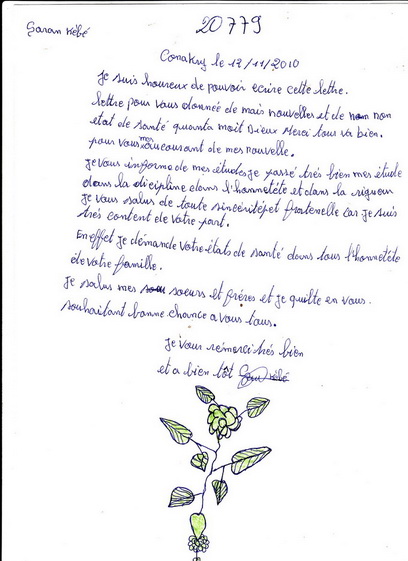 Saran Kébé
20779
Conakry le 12/11/2010
Je suis houreux de pouvoir ecrire cette lettre.
lettre pour vous donnée de mais nouvelles et de mon
etat de santé quanta moit Dieux Merci tous va bien.
pour vous mes au couraant de mes nouvelle.
Je vous informe de mes études, je passé trés bien mes étude
dans la dicipline dans l'honnetété et dans la rigueur
Je vous salus de toute sincéritépet fratenelle car Je suis
trés content de votre part.
En effet Je démande votre états de santé dans tous l'honnetété
de votre famille.
Je salus mes soeurs et fréres et je quitte en vous.
souhaitant banne chance a vous tous.
Je vous rémerci trés bien
et a bien tôt Saran Kébé